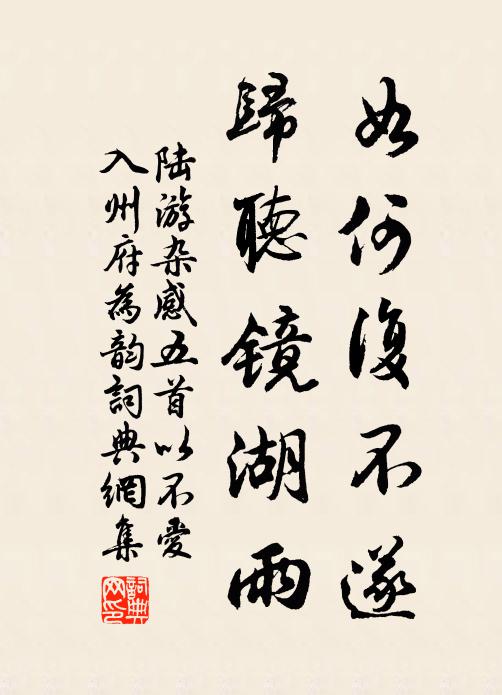 如何復不遂
歸聽鏡湖雨
陆游杂感五首以不爱
入州府為韵詞典網集
詞典网印